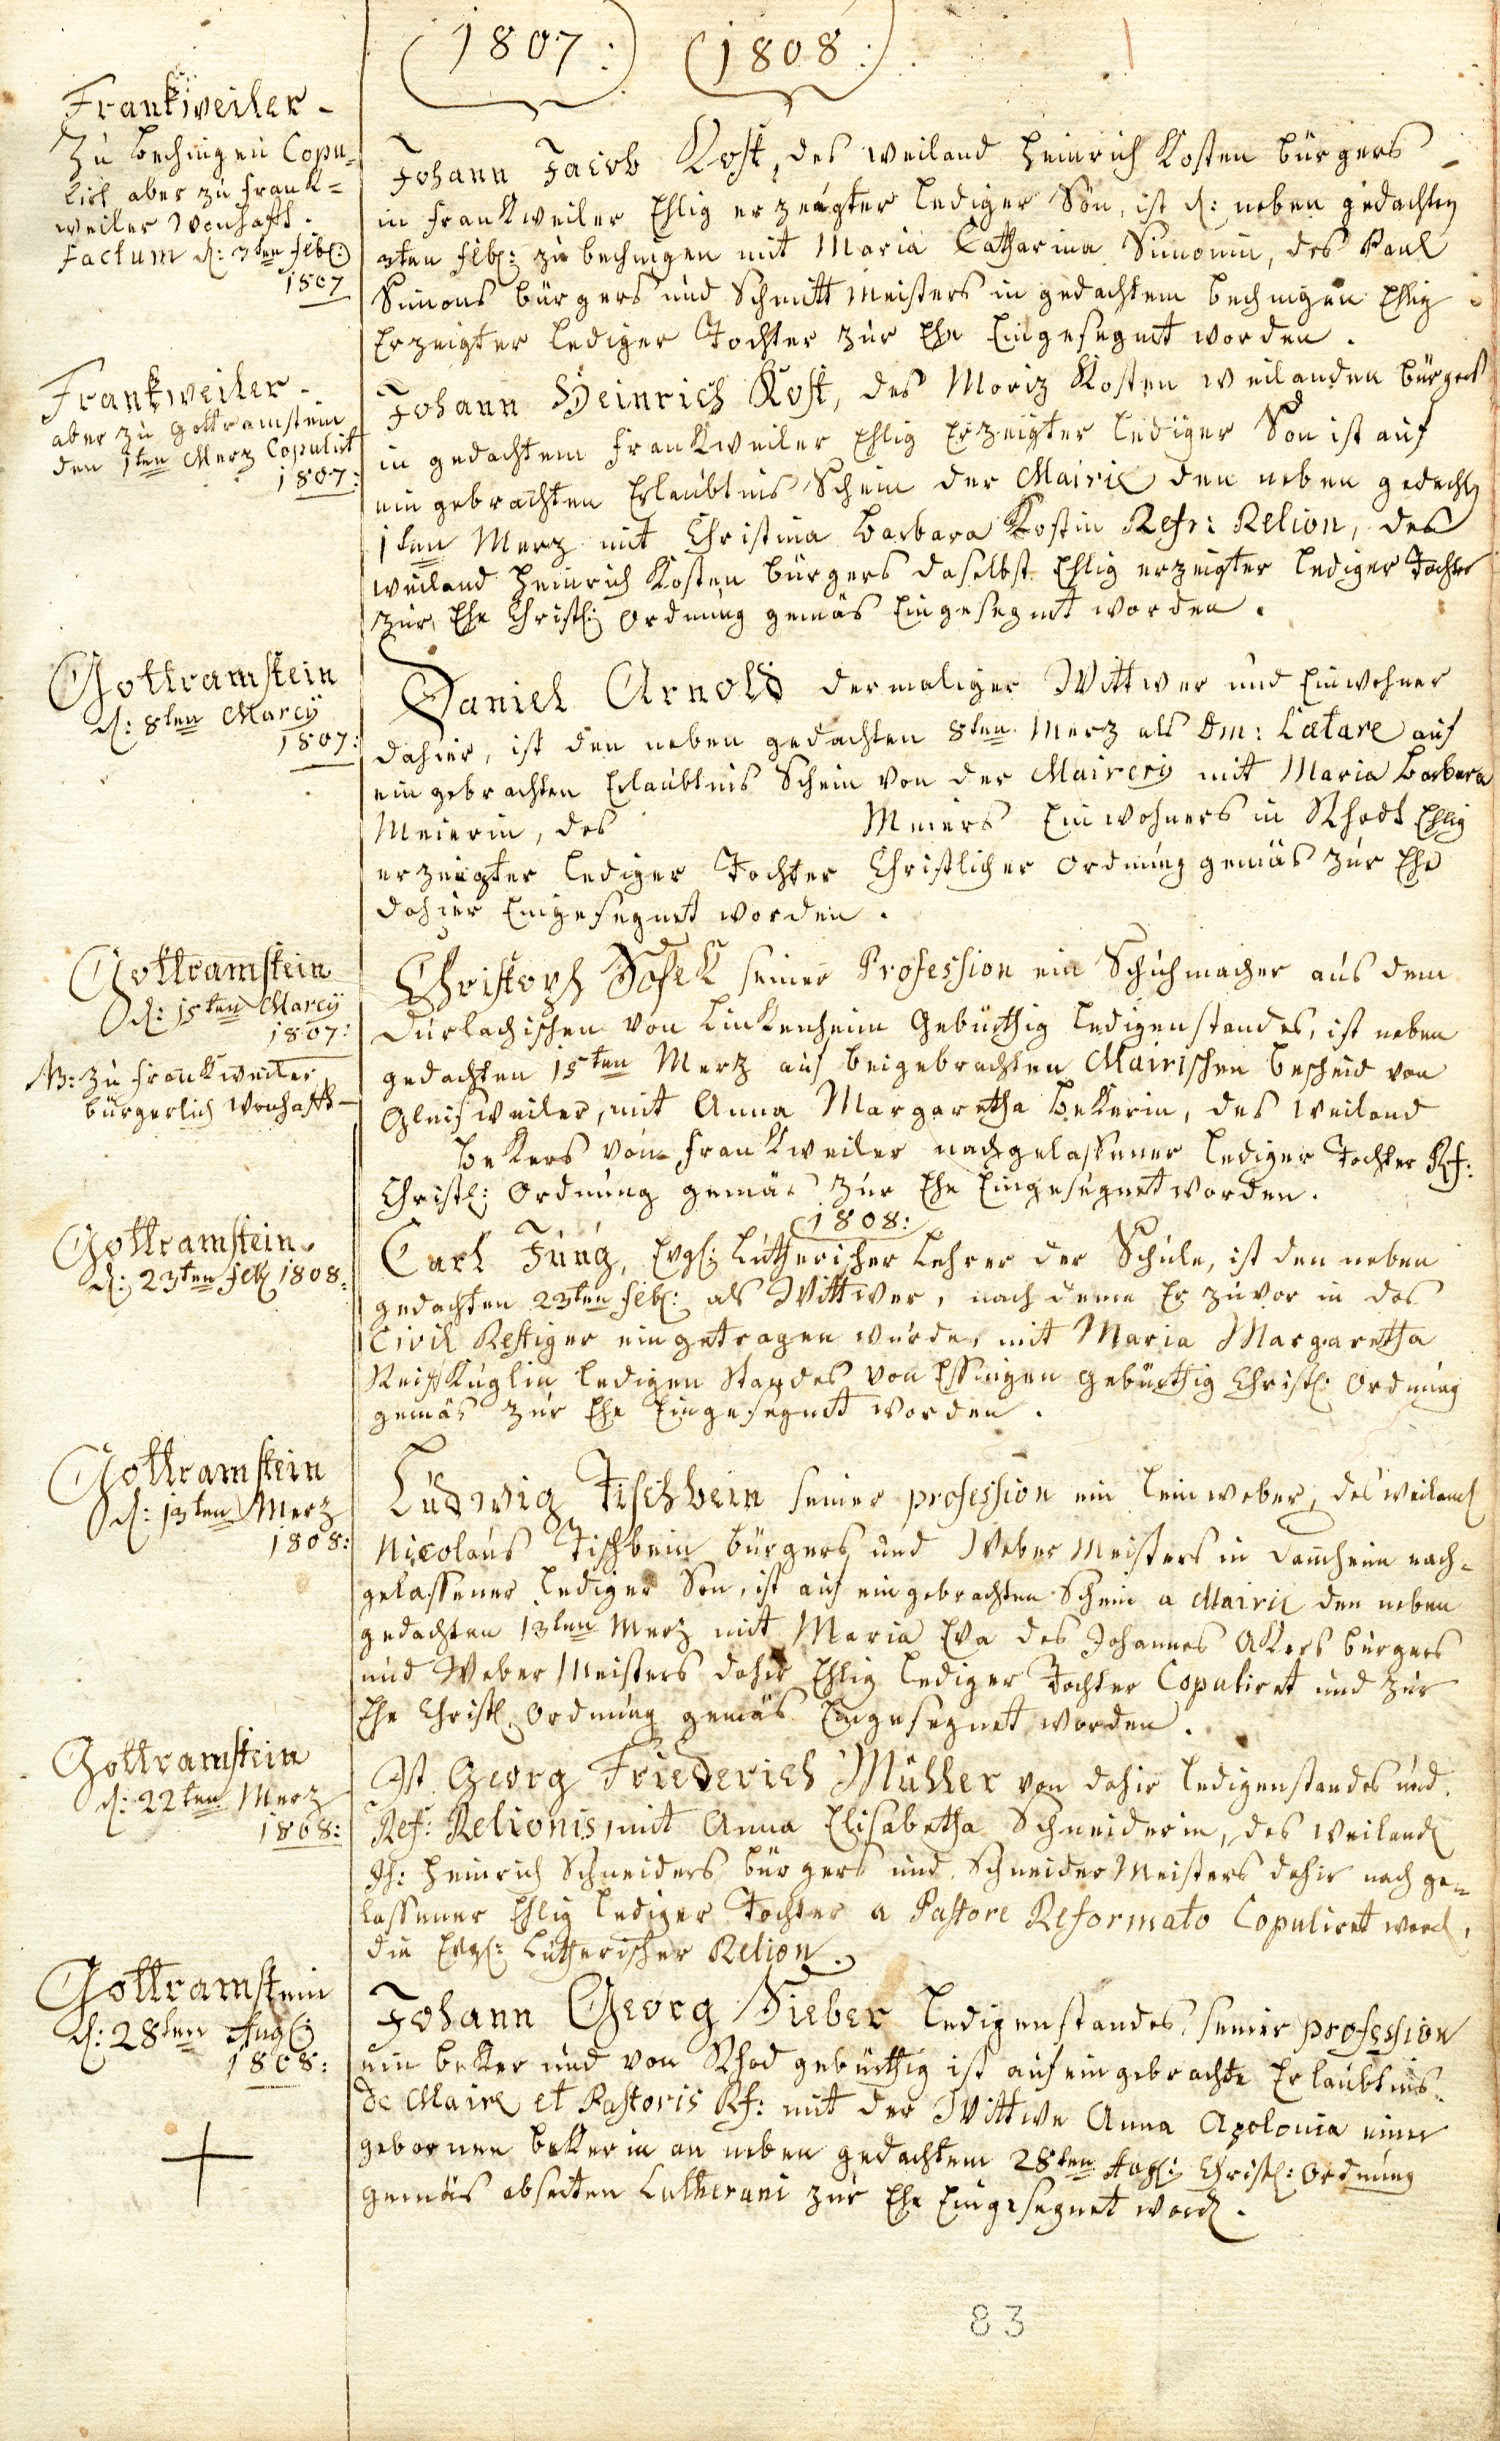 1807: 1808:
Frankweiler -
Zu Bechingen Copu=
lirt aber zu Frank=
weiler wonhafft.
Factum d: 3ten Feb:
1807
Johann Jacob Kost, des weiland Heinrich Kosten bürgers
in Frankweiler Ehlig erzeugter lediger Son, ist d: neben gedachten
3ten Feb: zu bechingen mit Maria Catharina Simonin, des Paul
Simons bürgers und Schmitt Meisters in gedachtem bechingen Ehlig
Erzeigter lediger Tochter zur Ehe Eingesegnet worden.
Frankweiler -
aber zu Gottramstein
den 1ten Merz Copulirt
1807:
Johann Heinrich Kost, des Moriz Kosten weilanden bürgers
in gedachtem Frankweiler Ehlig Erzeigter lediger Son ist auf
ein gebrachten Erlaubtnis Schein der Mairie den neben gedachten
1ten Merz mit Christina Barbara Kostin Refr: Relion, des
weiland Heinrich Kosten bürgers daselbst Ehlig erzeigter lediger Tochter
zur Ehe Christl: Ordnung gemäs Eingesegnet worden.
Gottramstein
d: 8ten Marcÿ
1807:
Daniel Arnold dermaliger Wittwer und Einwohner
dahier, ist den neben gedachten 8ten Merz als Dm: Lætare auf
ein gebrachten Erlaubtnis Schein von der Mairery mit Maria Barbara
Meierin, des Meiers Einwohners in Rhodt Ehlig
erzeugter lediger Tochter Christlicher Ordnung gemäs zur Ehe
dahier Eingesegnet worden.
Gottramstein
d: 15ten Marcÿ
1807:
NB: zu Frankweiler
bürgerlich wonhafft -
Christoph Hosek seiner Profession ein Schuhmacher aus dem
Durlachischen von Linkenheim Gebürthig ledigenstandes, ist neben
gedachten 15ten Merz auf beigebrachten Mairischen bescheid von
Gleisweiler, mit Anna Margaretha Bekerin, des weiland
Bekers von Frankweiler nachgelassener lediger Tochter Rf:
Christl: Ordnung gemäs zur Ehe Eingesegnet worden.
1808:
Gottramstein
d: 23ten Feb 1808:
Carl Jung, Evgl: Lutherischer Lehrer der Schule, ist den neben
gedachten 23ten Feb: als Wittwer, nach deme Er zuvor in das
Civil Restiger eingetragen wurde, mit Maria Margaretha
Reiffküglin ledigen Standes von Essingen gebürthig Christl: Ordnung
gemäs zur Ehe Eingesegnet worden.
Gottramstein
d: 13ten Merz
1808:
Ludwig Tischbein seiner profession ein leinweber, des weiland
Nicolaus Tischbein bürgers und Weber Meisters in Damheim nach=
gelassener lediger Son, ist auf ein gebrachten Schein a Mairie den neben
gedachten 13ten Merz mit Maria Eva des Johannes Akers bürgers
und Weber Meisters dahir Ehlig lediger Tochter Copuliret und zur
Ehe Christl: Ordnung gemäs Eingesegnet worden.
Gottramstein
d: 22ten Merz
1808:
Ist Georg Friederich Müller von dahir ledigenstandes und
Ref: Relionis, mit Anna Elisabetha Schneiderin, des weiland
Jh: Heinrich Schneiders bürgers und Schneider Meisters dahir nach ge=
lassener Ehlig lediger Tochter a Pastore Reformato Copuliret word,
die Evgl: Lutherischer Relion.
Gottramstein
d: 28ten Aug:
1808:
Johann Georg Sieber ledigenstandes, seiner profession
ein beker und von Rhod gebürthig ist auf ein gebrachte Erlaubtnis
de Maire et Pastoris Rf: mit der Wittwe Anna Apolonia einer
gebornen bekerin an neben gedachtem 28ten Aug: Christl: Ordnung
gemäs abseiten Lutherani zur Ehe Eingesegnet word.
83